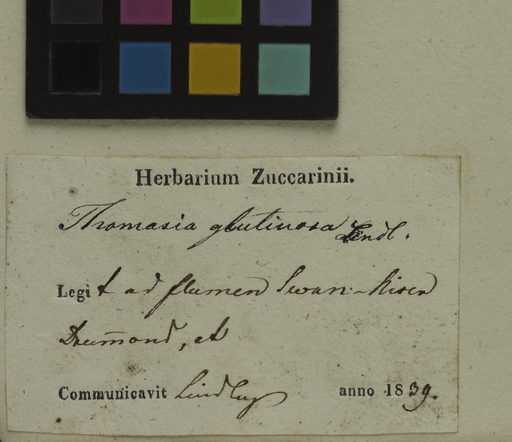 Herbarium Zuccarinii.
Thomasia glutinosa Lindl.
Legit ad flumen Swan-River
Drum̄ond, et
Communicavit Lindley
anno 1839.